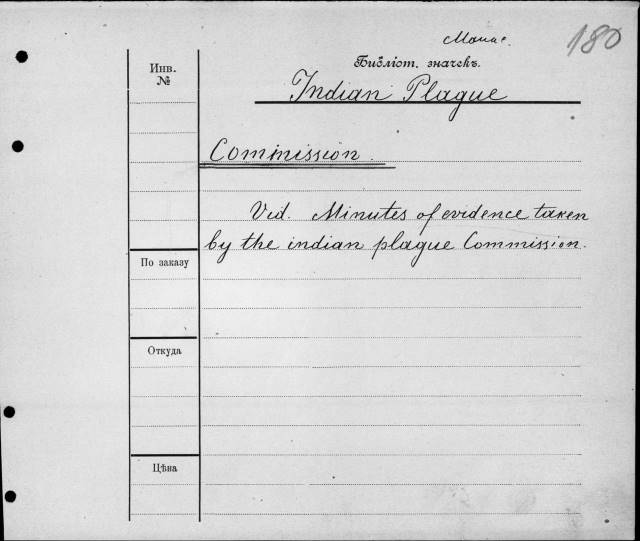 180
Библіот. значекъ.
Инв.
№
Indian Plague
Commission.
Vid. Minutes of evidence taken
by the indian plague Commission.
По заказу
Откуда
Цѣна